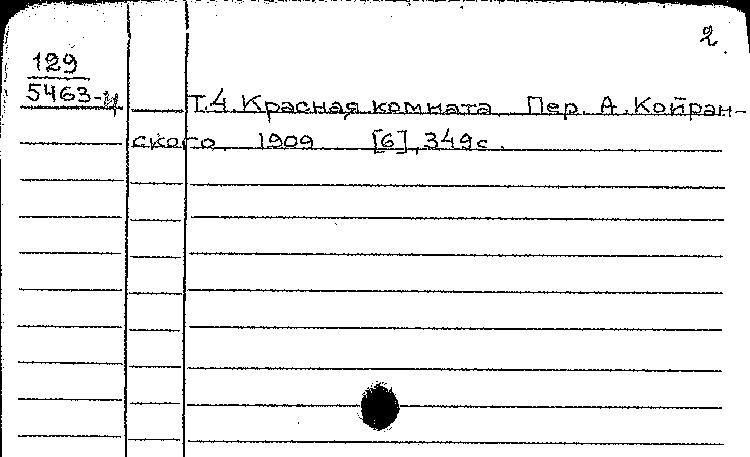 2.
129
5463-4
Т.4. Красная комната Пер. А. Койран-
ского 1909 [6], 349с.